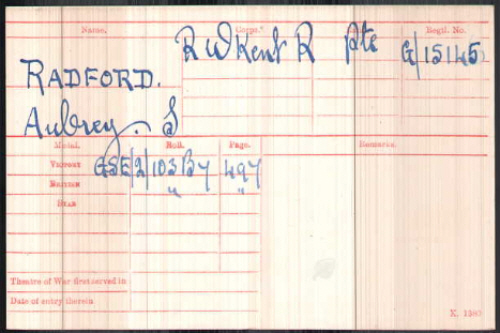 Name. Corps. Regtl. No.
R W Kent R Pte G/15145
RADFORD.
Aubrey. S
Medal. Roll. Page. Remarks.
VICTORY GSE/2/103B7 497
BRITISH " "
STAR
Theatre of War first served in
Date of entry therein
K. 1380